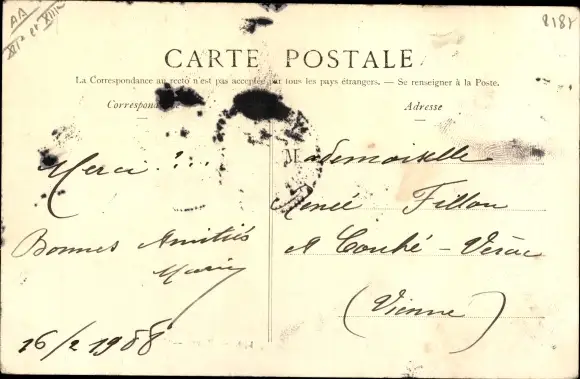 AA
XIe et XIIIe
8187
CARTE POSTALE
La Correspondance au recto n'est pas acceptée par tous les pays étrangers. — Se renseigner à la Poste.
Correspond
Adresse
Merci !...
Bonnes Amitiés
Marie
16/2 1908
Mademoiselle
Renée Fillon
A Couhé - Vérac
(Vienne)